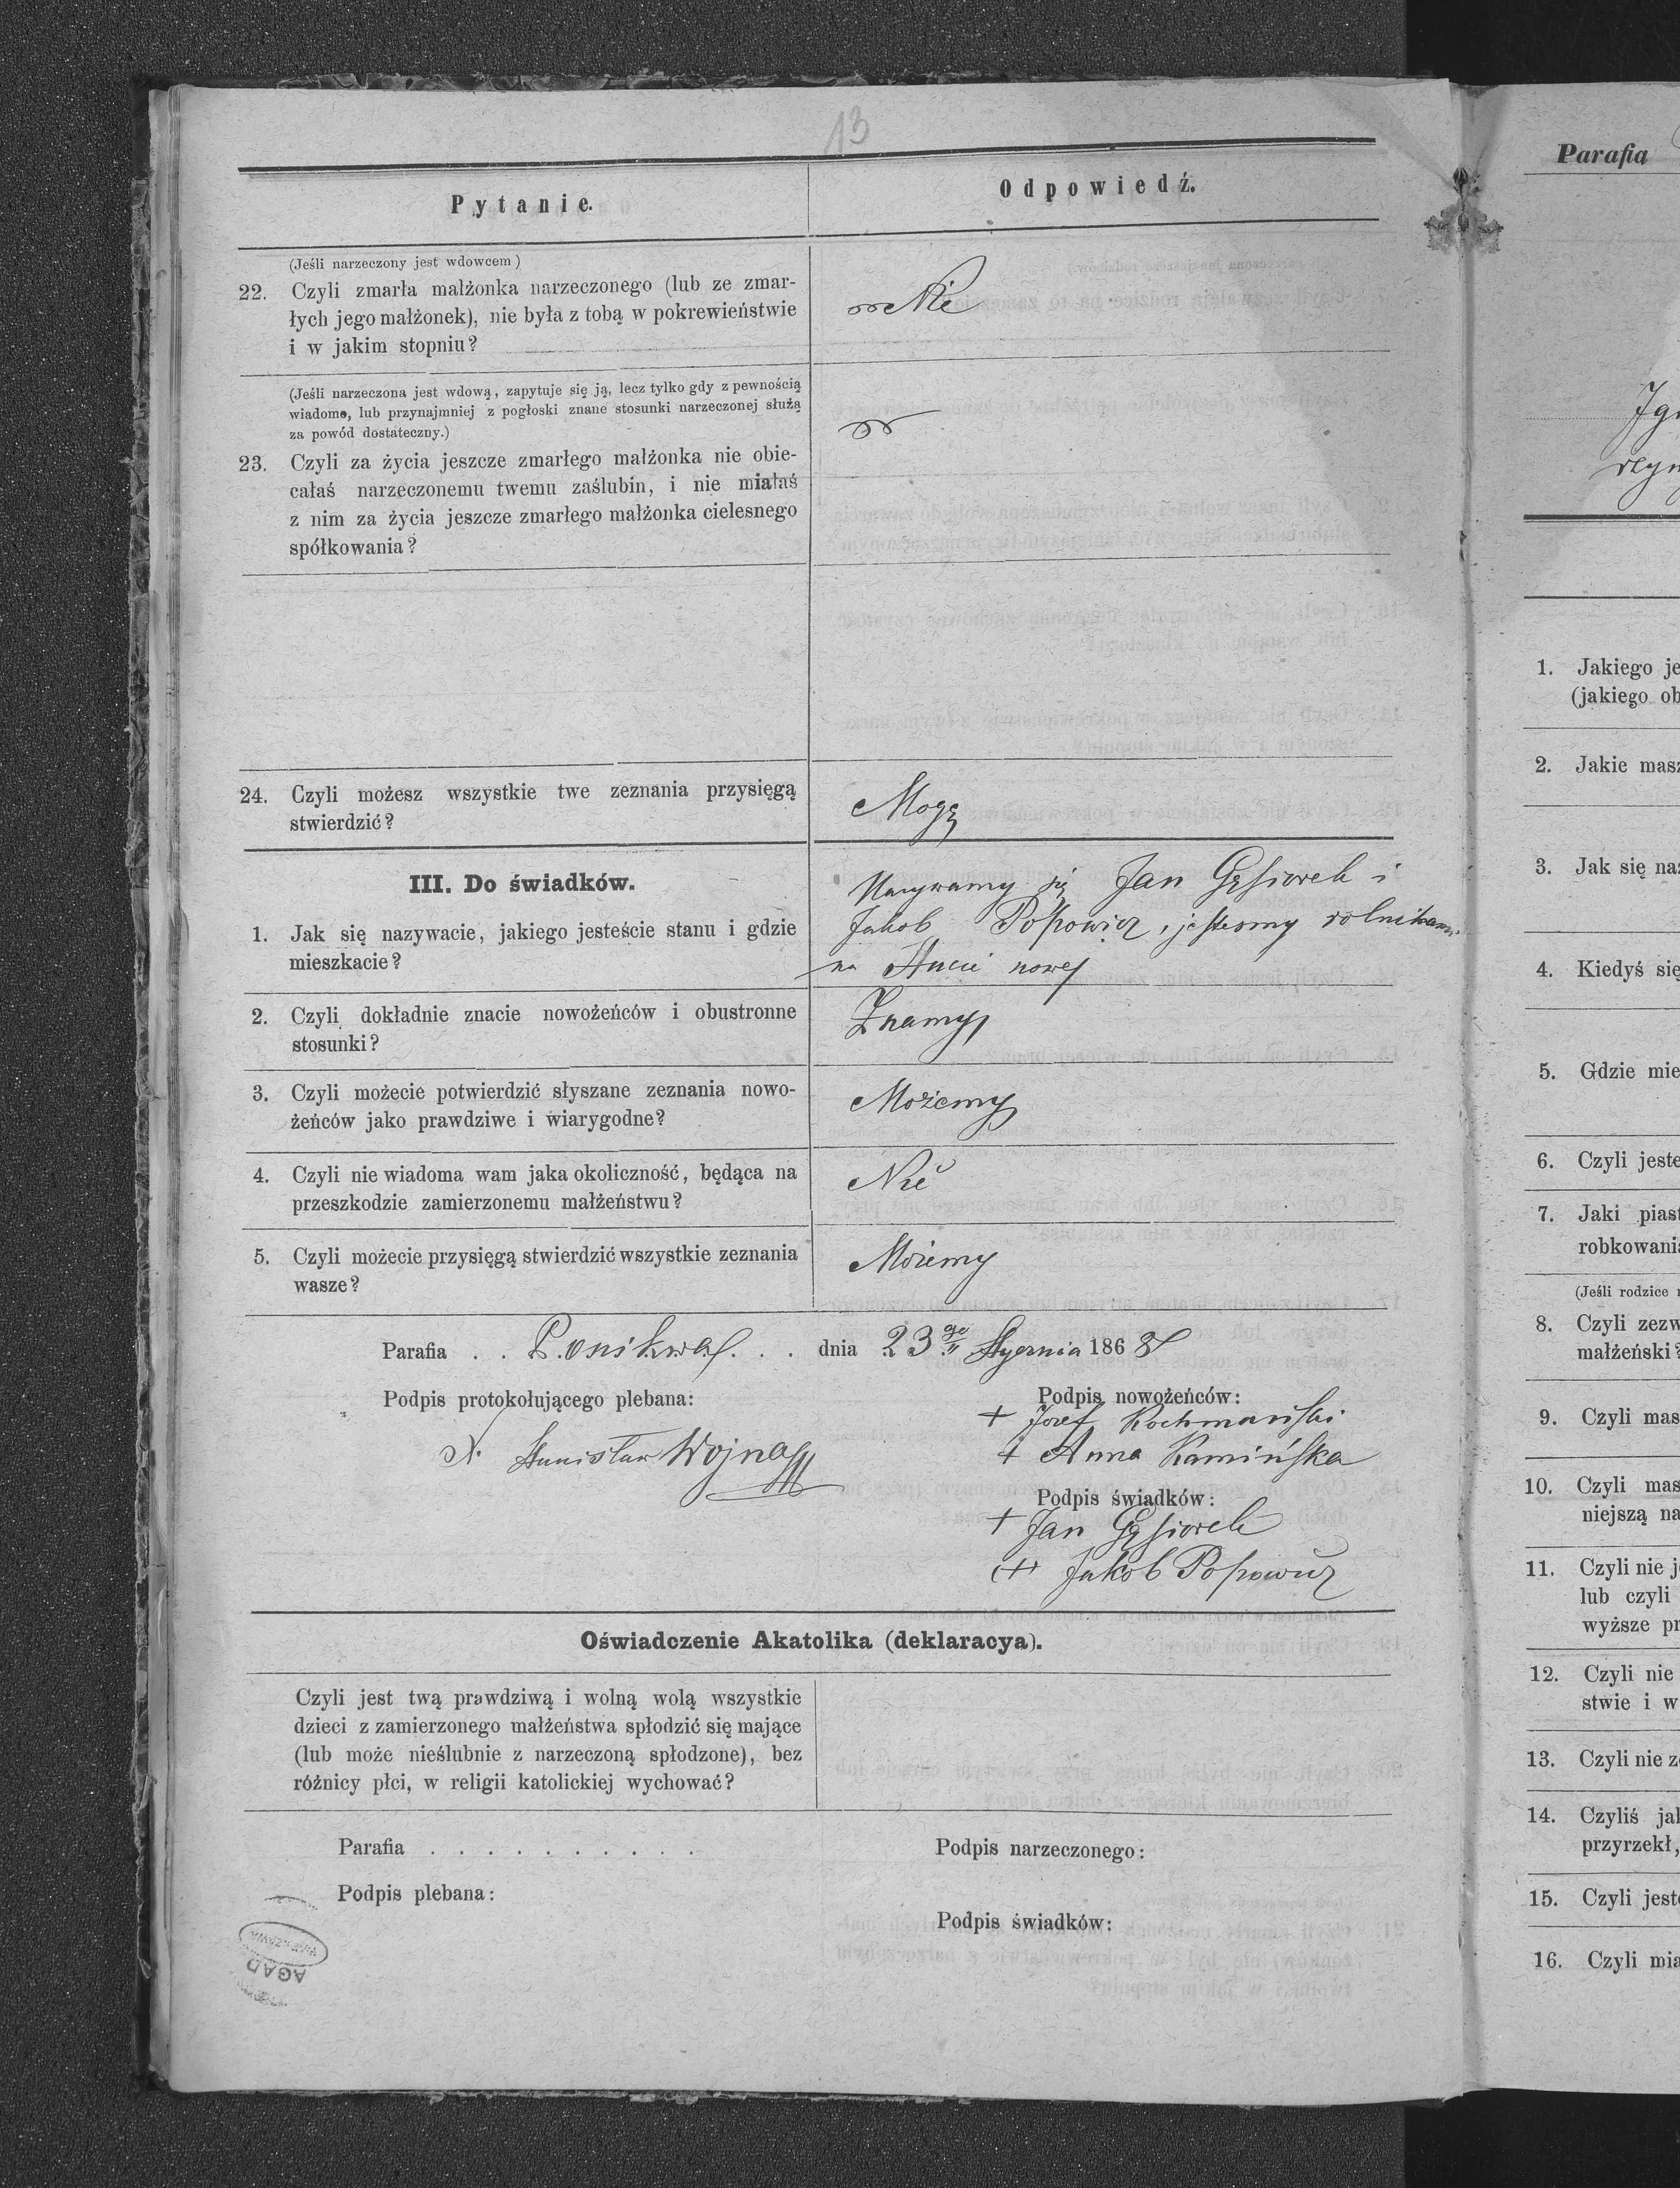 13
Pytanie.
Odpowiedź.
(Jeśli narzeczony jest wdowcem)
22. Czyli zmarła małżonka narzeczonego (lub ze zmar-
łych jego małżonek), nie była z tobą w pokrewieństwie
i w jakim stopniu?
Nie
(Jeśli narzeczona jest wdową, zapytuje się ją, lecz tylko gdy z pewnością
wiadome, lub przynajmniej z pogłoski znane stosunki narzeczonej służą
za powód dostateczny.)
23. Czyli za życia jeszcze zmarłego małżonka nie obie-
całaś narzeczonemu twemu zaślubin, i nie miałaś
z nim za życia jeszcze zmarłego małżonka cielesnego
spółkowania?
24. Czyli możesz wszystkie twe zeznania przysięgą
stwierdzić?
Mogę
III. Do świadków.
1. Jak się nazywacie, jakiego jesteście stanu i gdzie
mieszkacie?
Nazywamy się Jan Gąsiorek i
Jakob Popowicz, jestesmy rolnikami
na Hucie nowej
2. Czyli dokładnie znacie nowożeńców i obustronne
stosunki?
Znamy
3. Czyli możecie potwierdzić słyszane zeznania nowo-
żeńców jako prawdziwe i wiarygodne?
Możemy
4. Czyli nie wiadoma wam jaka okoliczność, będąca na
przeszkodzie zamierzonemu małżeństwu?
Nie
5. Czyli możecie przysięgą stwierdzić wszystkie zeznania
wasze?
Możemy
Parafia . . Ponikwa . . . dnia 23go Stycznia 1868
Podpis protokołującego plebana:
X. Stanisław Wojna
Podpis nowożeńców:
+ Jozef Kochmański
+ Anna Kamińska
Podpis świadków:
+ Jan Gąsiorek
+ Jakob Popowicz
Oświadczenie Akatolika (deklaracya).
Czyli jest twą prawdziwą i wolną wolą wszystkie
dzieci z zamierzonego małżeństwa spłodzić się mające
(lub może nieślubnie z narzeczoną spłodzone), bez
różnicy płci, w religii katolickiej wychować?
Parafia . . . . . . . . . .
Podpis narzeczonego:
Podpis plebana:
Podpis świadków:
AGAD
WARSZAWA
Parafia
1. Jakiego je
(jakiego ob
2. Jakie masz
3. Jak się naz
4. Kiedyś się
5. Gdzie mie
6. Czyli jeste
7. Jaki piast
robkowania
(Jeśli rodzice
8. Czyli zezw
małżeński?
9. Czyli mas
10. Czyli mas
niejszą na
11. Czyli nie j
lub czyli
wyższe pr
12. Czyli nie
stwie i w
13. Czyli nie z
14. Czyliś jak
przyrzekł,
15. Czyli jest
16. Czyli mia